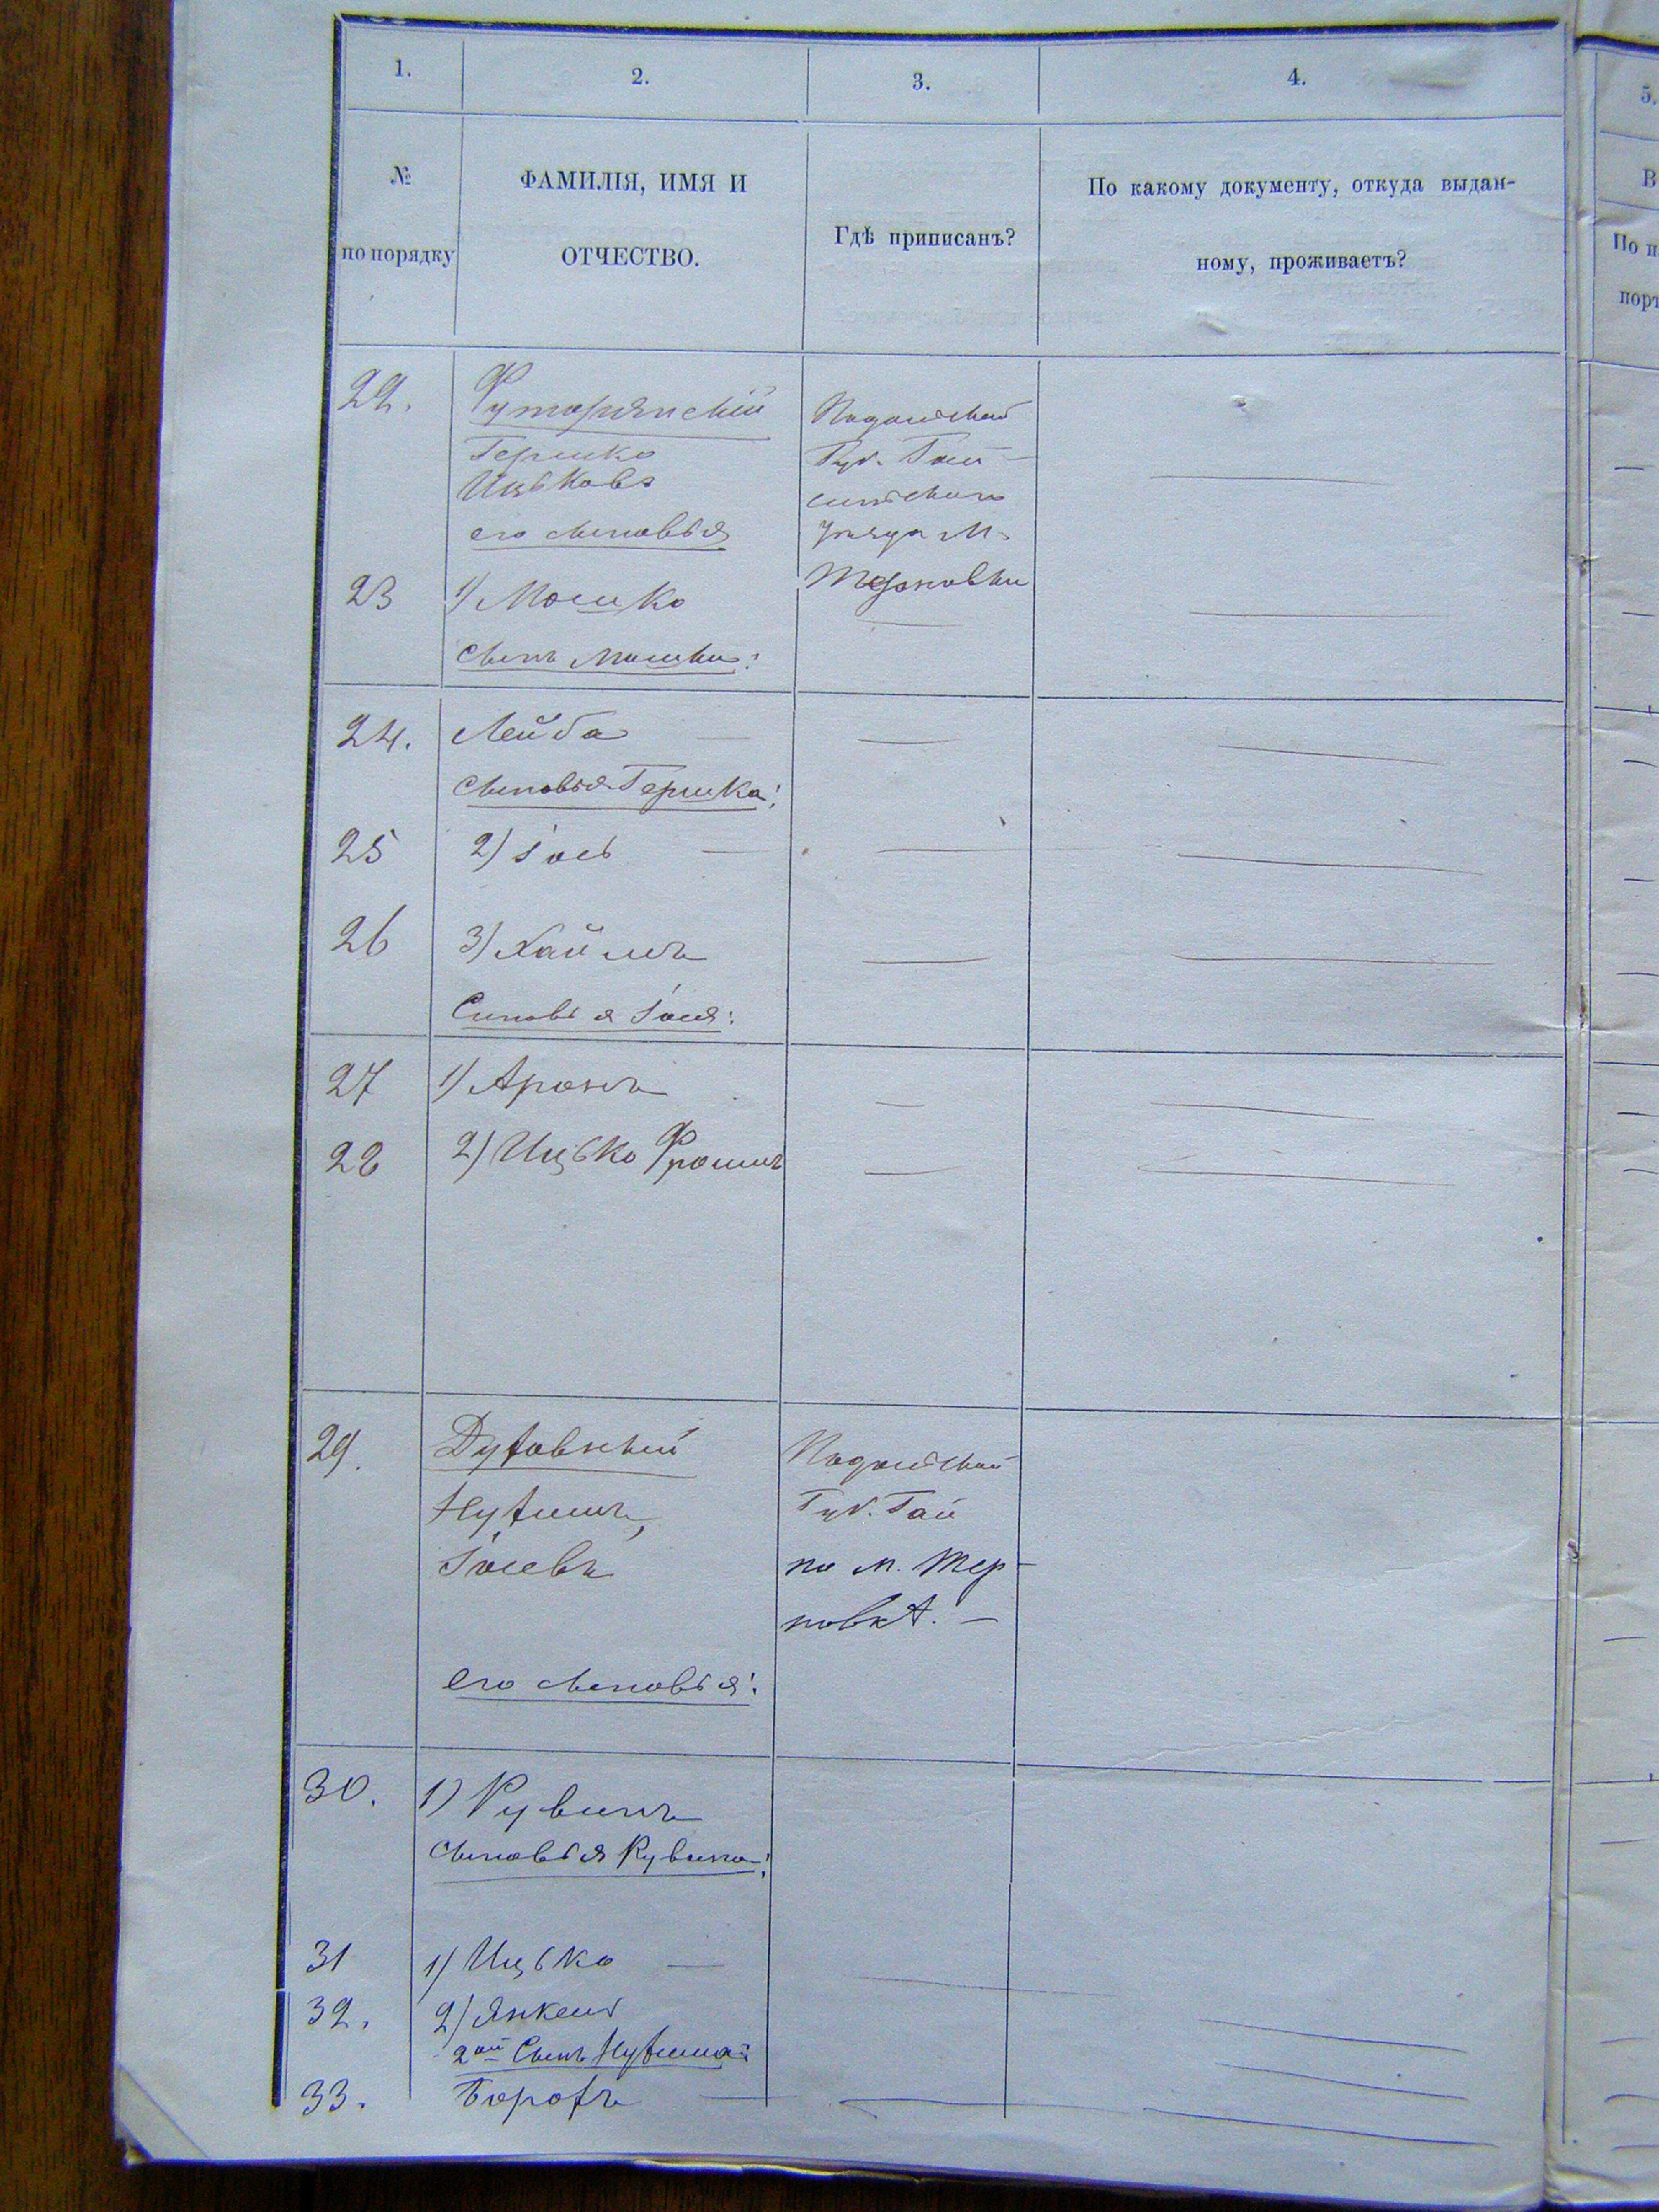 1.
2.
3.
4.
5.
№
по порядку
ФАМИЛІЯ, ИМЯ И
ОТЧЕСТВО.
Гдѣ приписанъ?
По какому документу, откуда выдан-
ному, проживаетъ?
В
По п
порт
22.
Футорянскій
Гершко
Ицьковъ
его сыновья
Подольской
Губ. Гай-
синскаго
Уѣзда М.
Терновки
23
1) Мошко
сынъ Мошки:
24.
Лейба
сыновья Гершка:
25
2) Іось
26
3) Хаймъ
Сыновья Іося:
27
1) Аронъ
28
2) Ицько Фроимъ
29.
Нухимъ,
Іосевъ
его сыновья:
Подольской
Губ. Гай
по м. Тер-
новкѣ.
30.
1) Рувинъ
сыновья Рувина:
31
1) Ицько
32.
2) Янкель
2ой Сынъ Нухима:
33.
Борохъ